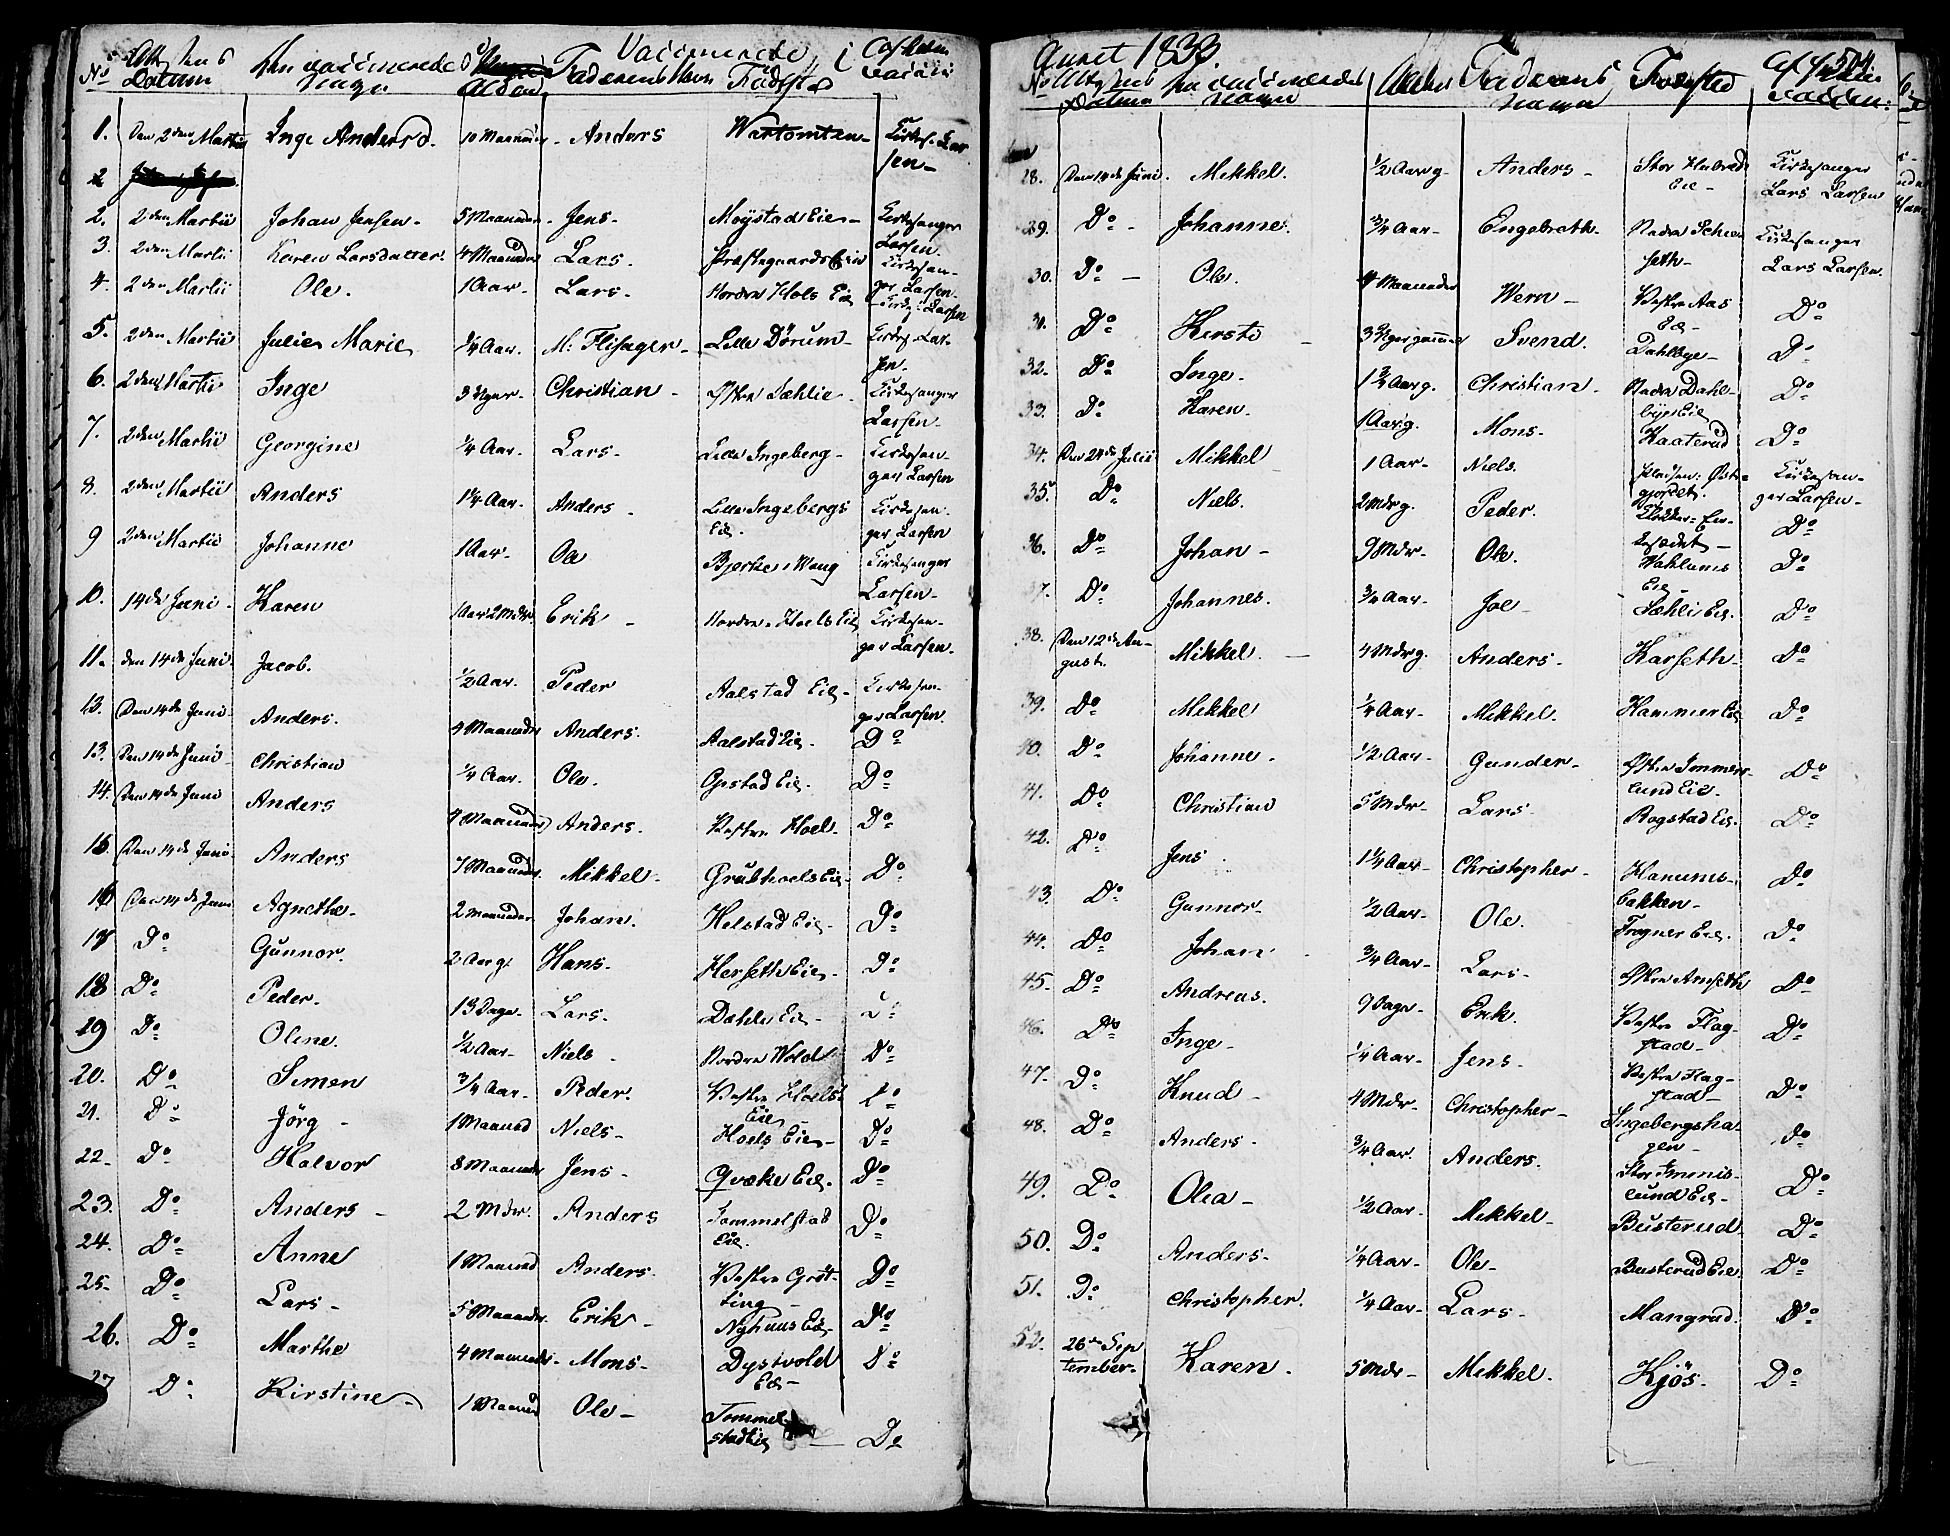 Vaccinerede i
No Attestens Datum De vaccineredes Navn Alder Faderens Navn Fødested Af hvem vaccin:
1. Den 2den Martii Inge Andersd. 10 Maaneder Anders Kirkes. Larsen
2
2. 2den Martii Johan Jensen 5 Maaneder Jens Moystad Eie Kirkesanger Larsen.
3. 2den Martii Karen Larsdatter 4 Maaneder Lars. Præstegaards Eie Kirkesanger Larsen.
4. 2den Martii Ole. 1 Aar. Lars. Nordre Hols Eie Kirkes. Larsen
5. 2den Martii Julie Marie 1/4 Aar. M: Flisager Lille Dörum Kirkes. Larsen.
6. 2den Martii Inge 3 Uger Christian Østre Sæhlie Kirkesanger Larsen
7. 2den Martii Georgine 1/4 Aar. Lars Lille Ingeberg Kirkesanger Larsen
8. 2den Martii Anders 1 1/4 Aar. Anders Lille Ingebergs Eie. Kirkesanger Larsen
9 2den Martii Johanne 1 Aar. Ole Bjerke i Wang Kirkesanger Larsen
10. 14de Juni Karen 1 Aar 2 Mdr Erik Nordre Hoels Eie Kirkesanger Larsen.
11. den 14de Juni Jacob. 1/2 Aar. Peder Aalstad Eie Kirkesanger Larsen
12. Den 14de Juni Anders. 4 Maaneder Anders. Aalstad Eie Do
13. Den 14de Juni Christian 1/4 Aar. Ole. Opstad Eie. Do
14. Den 14de Juni Anders 4 Maaneder Anders. Vestre Hoel Do
15. Den 14de Juni Anders 7 Maaneder Mikkel. Grubhoels Eie Do
16 Den 14de Juni Agnethe 2 Maaneder Johan. Helstad Eie Do
17 Do Gunnor. 2 Aar g. Hans. Herseth Eie Do
18 Do Peder. 13 Dage Lars. Dæhlie Eie Do
19 Do Oline. 1/2 Aar Niels Nordre Wold Do
20. Do Simen 3/4 Aar Peder. Vestre Hoels Eie Do
21. Do Jörg 1 Maaned Niels Hoels Eie Do
22. Do Halvor 8 Maaneder Jens Qvæke Eie. Do
23. Do Anders 2 Mdr. Anders Tommelstad Eie. Do
24. Do Anne 1 Maaned Anders. Vestre Grøtting Do
25. Do Lars 5 Maaneder Erik Nyhuus Eie Do
26. Do Marthe 4 Maaneder Mons Dystvold Eie Do
27 Do Kirstine 1 Maaned Ole Tommelstad Eie Do
Aaret 1833. 504.
No Attestens Datum De vaccineredes Navn Alder Faderens Navn Fødested Af hvem vaccin:
28. Den 14de Juni. Mikkel. 1/2 Aar g. Anders Stor Eie Kirkesanger Lars Larsen
29. Do Johanne. 3/4 Aar Engebreth Nedre Kirkesanger Lars Larsen.
30. Do Ole. 4 Maaneder Wern Vestre Aas Eie Do
31. Do Kersti 3 Uger gammel Svend. Dahlbye Do
32. Do Inge. 1 3/4 Aar g. Christian. Nedre Dahlbye Eie Do
33. Do Karen. 1 Aar g. Mons. Kaaterud Do
34. Den 24de Julii Mikkel 1 Aar Niels. Østgjordet. Kirkesanger Larsen
35. Do Niels. 2 Mdr g. Peder. Do
36. Do Johan 9 Mdr Ole. Eie Do
37. Do Johannes. 3/4 Aar Joe Sæhli Eie. Do
38. Den 12de August. Mikkel. 4 Mdr g. Anders. Karseth Do
39. Do Mikkel 1/4 Aar Mikkel. Hammer Eie Do
40. Do Johanne. 1/2 Aar Gunder Østre Immerslund Eie. Do
41. Do Christian 5 Mdr Lars Rogstad Eie. Do
42. Do Jens 1 1/4 Aar Christopher Hanumsbakken Do
43. Do Gunnor 1/2 Aar Ole. Frogner Eie. Do
44. Do Johan 3/4 Aar Lars Østre Amseth Do
45. Do Andreas. 9 Dage Erik. Vestre Flagstad Do
46. Do Inge 1/4 Aar Jens Vestre Flagstad Do
47. Do Knud 4 Mdr Christopher Ingebergshagen Do
48. Do Anders. 3/4 Aar. Anders. Stor Immislund Eie Do
49. Do Olea 1/2 Aar. Mikkel Busterud Do
50. Do Anders 1/4 Aar Ole Busterud Eie. Do
51. Do Christopher. 1/4 Aar Lars Mangrud Do
52. 26de September Karen 5 Mdr Mikkel. Kjös. Do